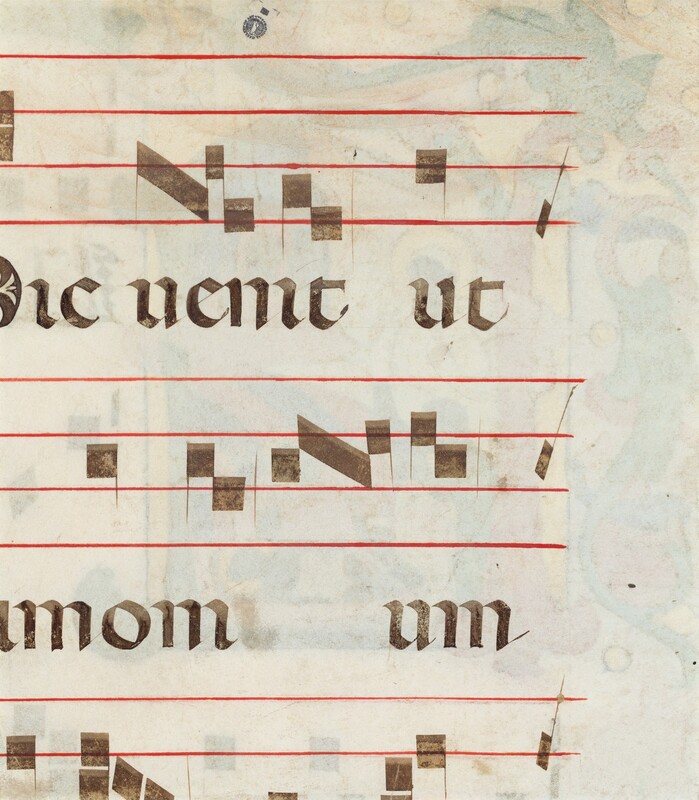 Hic uenit ut
imoni um